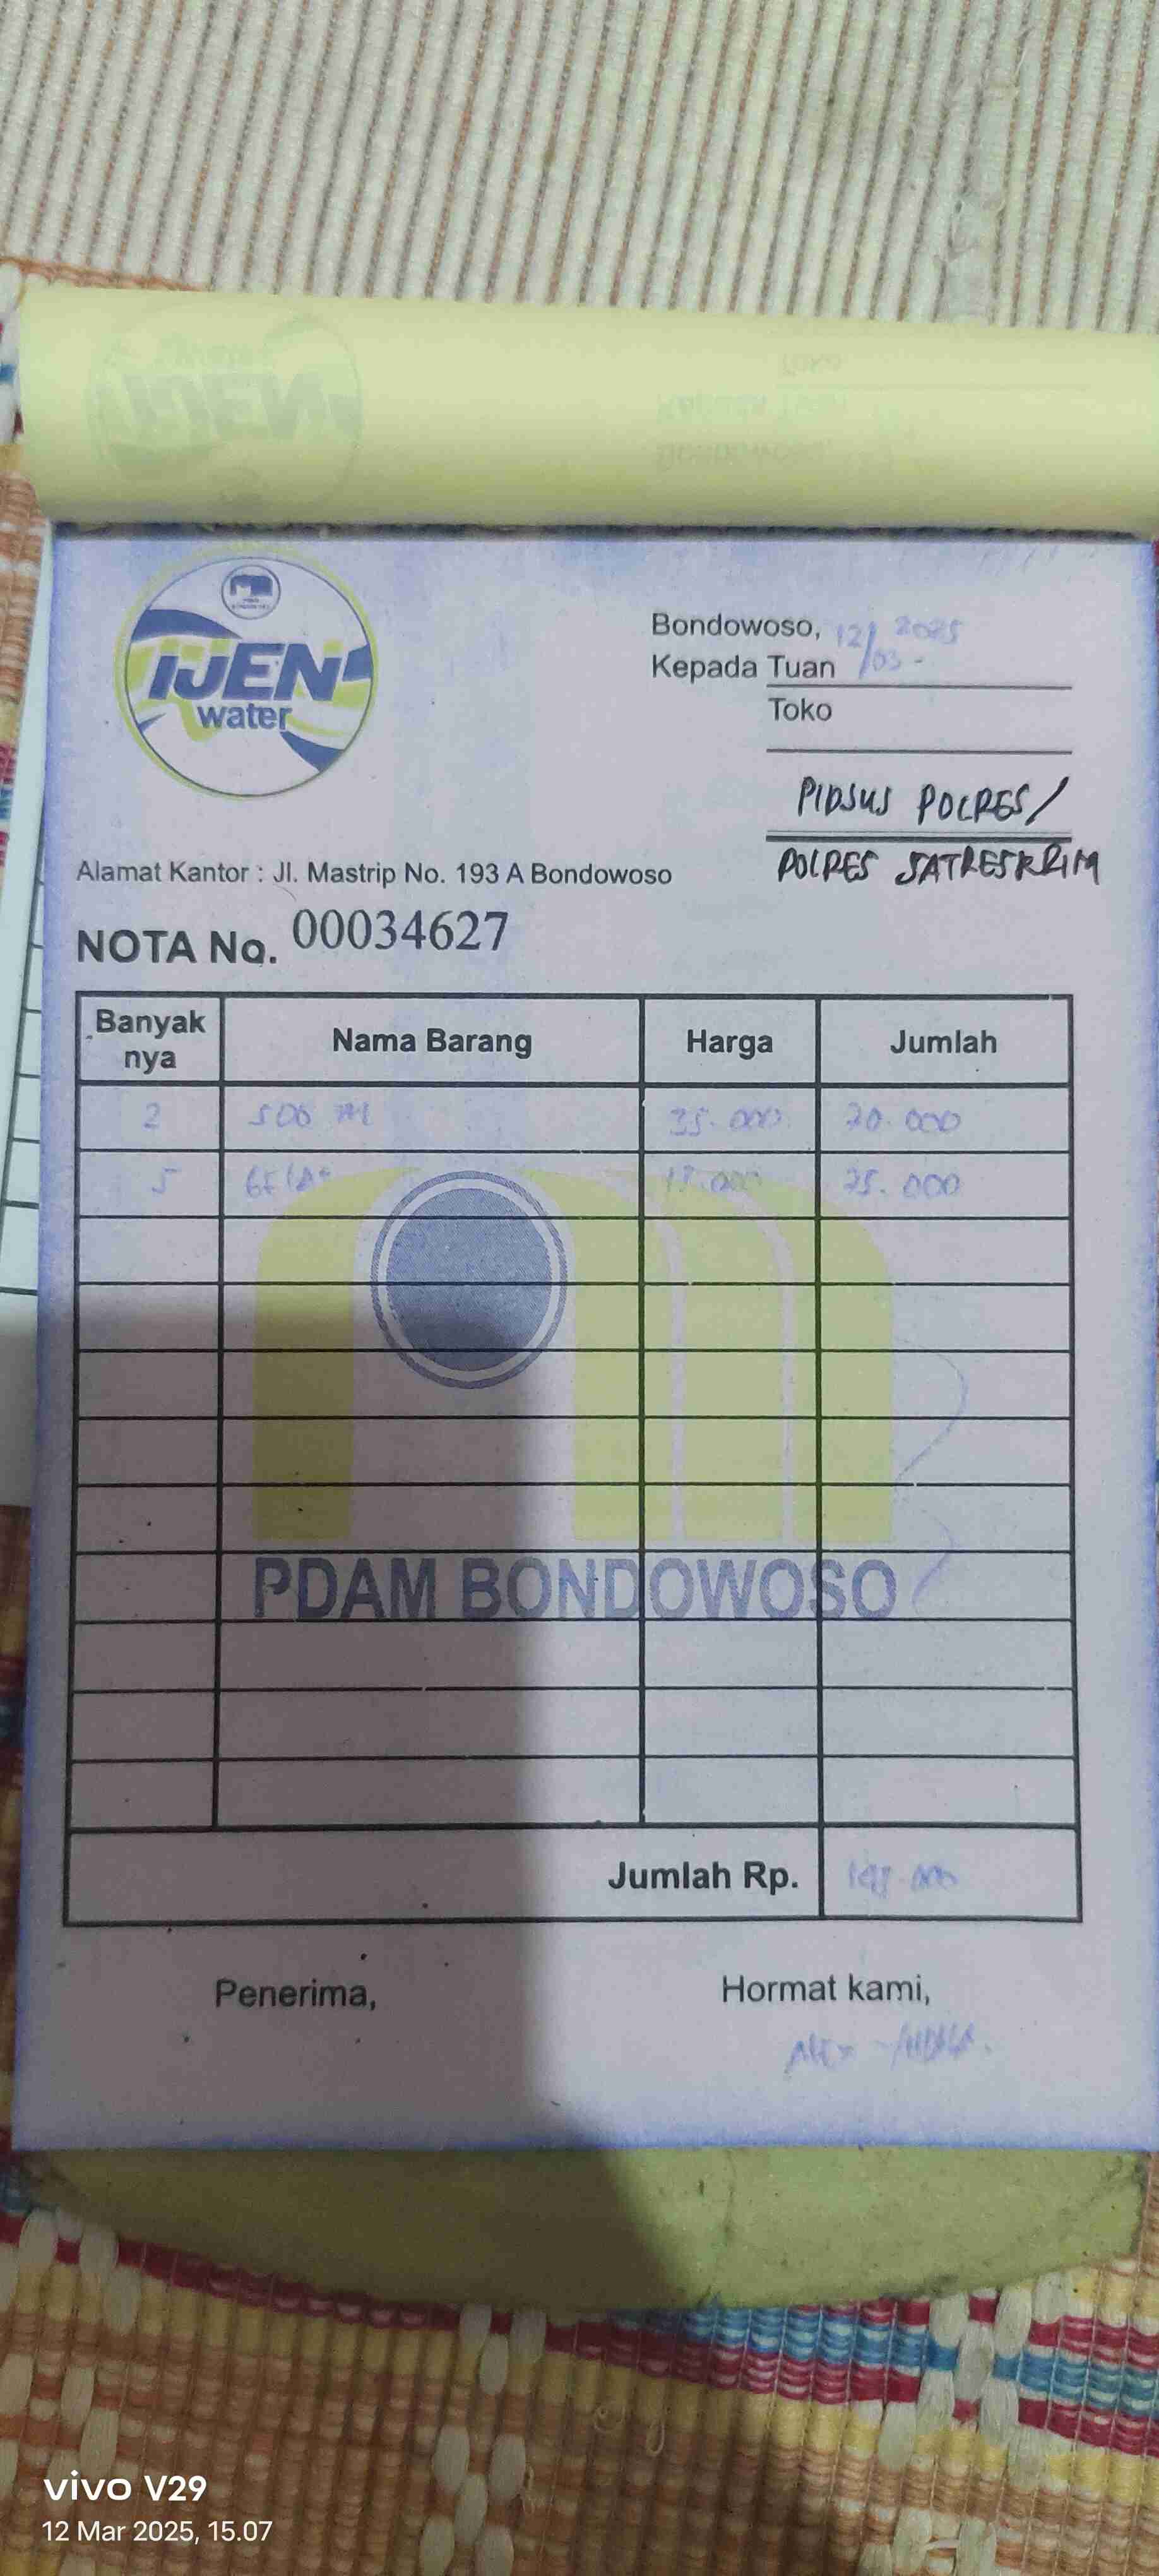 IJEN
water
Bondowoso, 12/03-2025
Kepada Tuan
Toko
PIDSUS POLRES/
POLRES SATRESKRIM
Alamat Kantor : Jl. Mastrip No. 193 A Bondowoso
NOTA No. 00034627
Banyak nya Nama Barang Harga Jumlah
2 500 Ml 35.000 70.000
5 GELAS 15.000 75.000
PDAM BONDOWOSO
Jumlah Rp. 145.000
Penerima, Hormat kami,
vivo V29
12 Mar 2025, 15.07